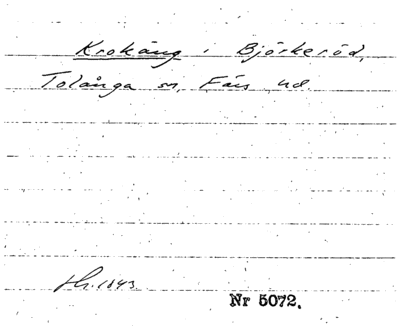 Krokäng i Björkeröd,
Tolånga sn, Färs hd.
Hr. 1843.
Nr 5072.